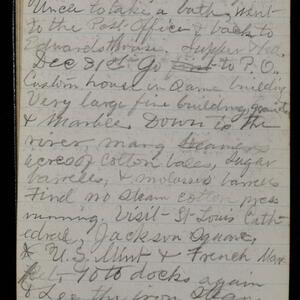 Uncle to take a bath, went
to the Post-Office & back to
Edwards House, Supper &c.
Dec 31st Go first to P.O.
Custom house in same building
Very large fine building, granite
& Marble. Down to the
river, many Steamers
acres of cotton bales, Sugar
barrels, & molasses barrels
Find no steam cotton press
running. Visit St Louis Cath-
edral, Jackson Square,
& U.S. Mint & French Mar-
ket. Go to docks again
& See the iron